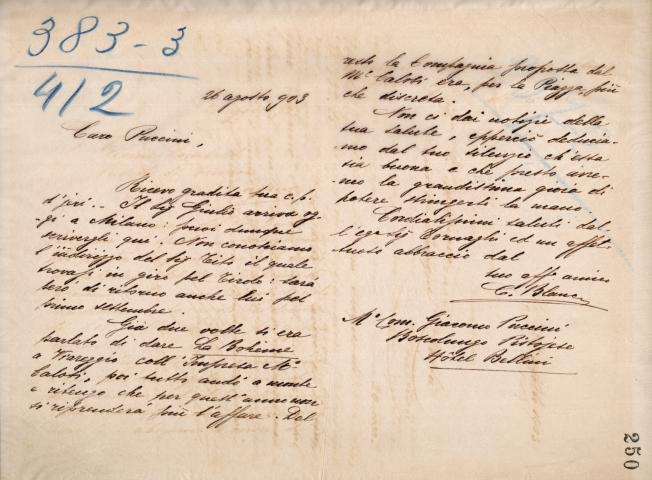 383-3
412
26 agosto 903
Caro Puccini,
Ricevo gradita tua c.p.
d'jeri. - Il Sig Giulio arriva og-
gi a Milano: puoi dunque
scrivergli qui. Non conosciamo
l'indirizzo del Sig Tito il quale
trovasi in giro pel Tirolo: sarà
però di ritorno anche lui pel
primo settembre.
Già due volte si era
parlato di dare La Bohème
a Viareggio coll'Impresa Mo
poi tutto andò a monte
e ritengo che per quest'anno non
si riprenderà più l'affare. Del
resto la Compagnia proposta dal
Mo era, per la Piazza, più
che discreta.
Non ci dai notizie della
tua salute, epperciò deducia-
mo dal tuo silenzio ch'essa
sia buona e che presto avre-
mo la grandissima gioia di
poterti stringerti la mano.
Cordialissimi saluti dal-
l'egr Sig Tornaghi ed un affet-
tuoso abbraccio dal
tuo affo amico
C. Blanc
Mo Com. Giacomo Puccini
Boscolungo Pistojese
Hôtel Bellini
250